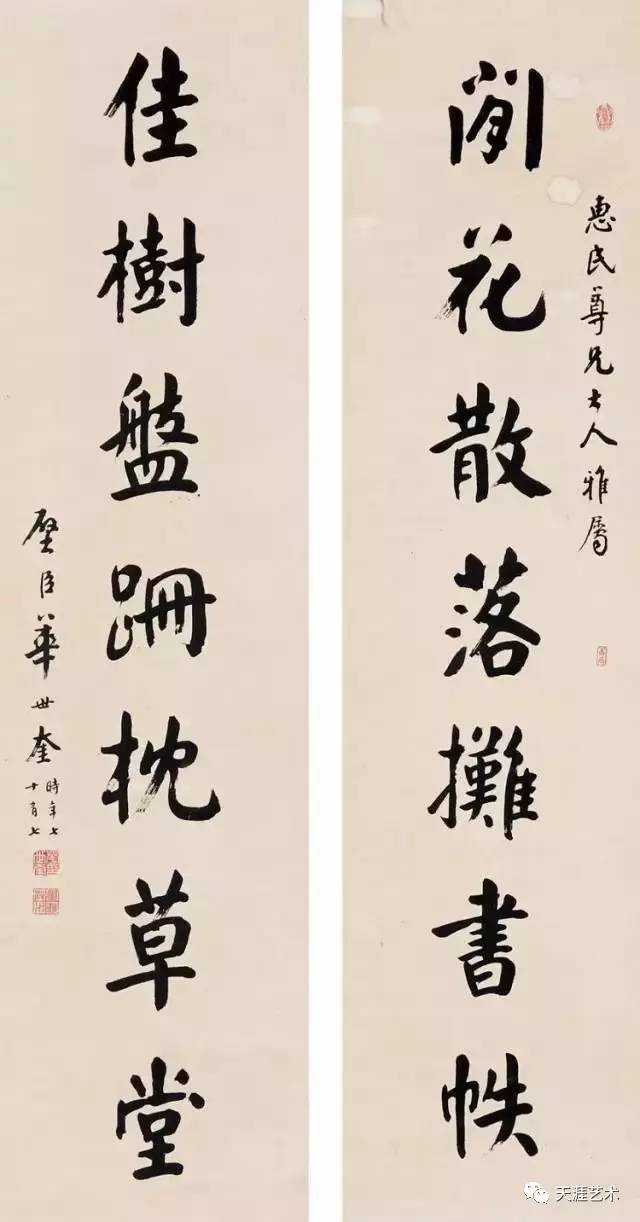 惠民尊兄大人雅屬
閒花散落攤書帙
佳樹盤跚枕草堂
壁臣華世奎
時年七
十有七
天涯艺术